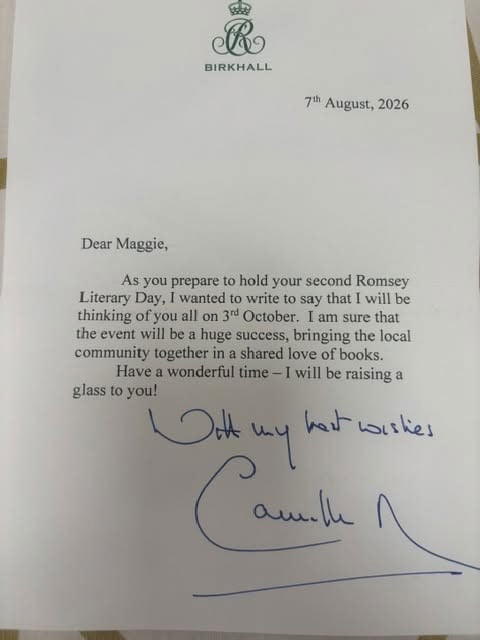 BIRKHALL
7th August, 2026
Dear Maggie,
As you prepare to hold your second Romsey
Literary Day, I wanted to write to say that I will be
thinking of you all on 3rd October.  I am sure that
the event will be a huge success, bringing the local
community together in a shared love of books.
Have a wonderful time – I will be raising a
glass to you!
With my best wishes
Camilla R